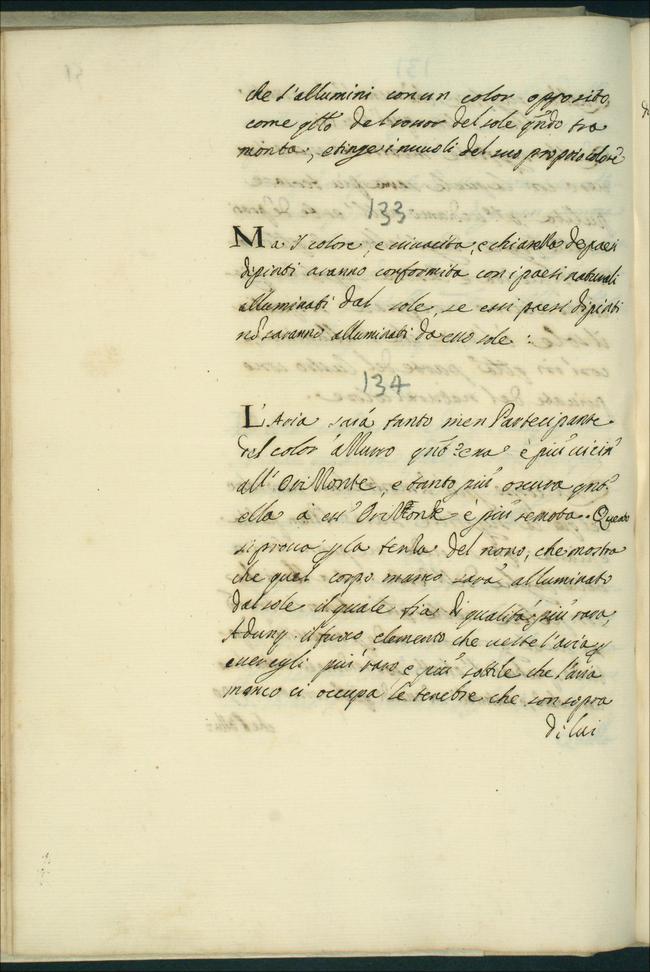 che l'allumini con un color opposito,
come q̃llo del rossor del sole qñdo tra
monta, e tinge i nuuoli del suo proprio colore
133
Ma 'l colore, e uiuacita, e chiarezza de paesi
dipinti aranno conformita con i paesi naturali
alluminati dal sole, se essi paesi dipinti
nõ saranno alluminati da esso sole :
134
L'Aria sará tanto men Partecipante
del color azzurro qñto è più uicin
all' Orizzonte, e tanto più oscura qñto
ella à ess' Orizzonte è più remota. Questo
si proua p la terza del nono, che mostra
che quel corpo manco sara alluminato
dal sole il quale fia di qualità più rara,
Adunq. il fuoco elemento che ueste l'aria p
esser egli più raro e più sottile che l'aria
manco ci occupa le tenebre che son sopra
di lui